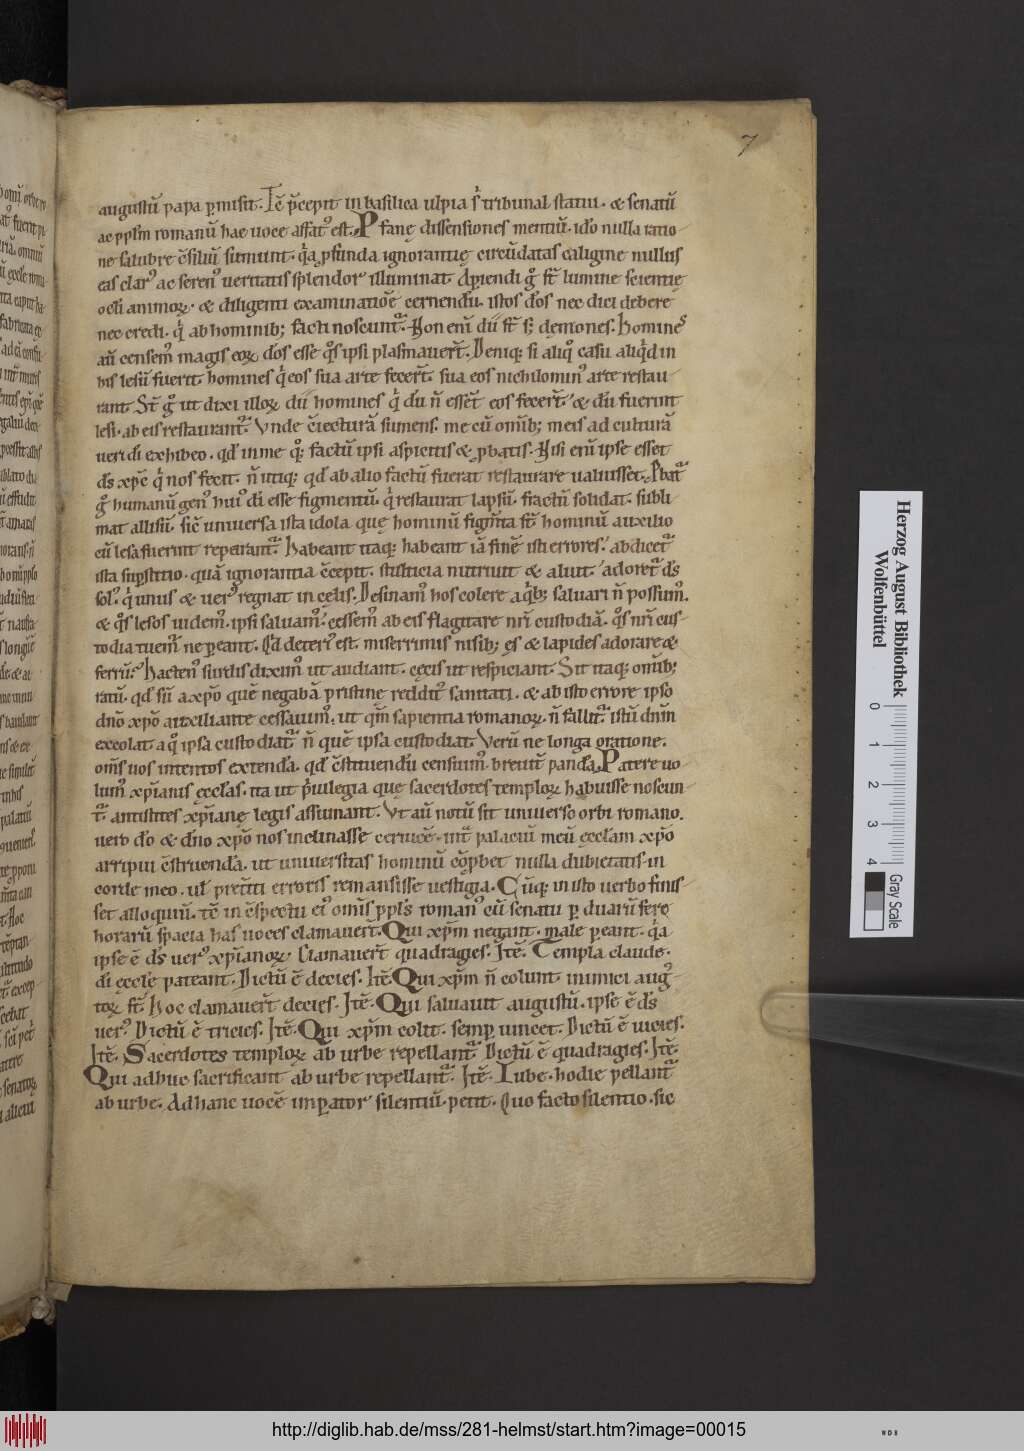 7
augustũ papa p̱misit. Tc̄ p̄cepit in basilica ulpia sͥ tribunal statui. & senatũ
ac pplm̄ romanũ hac uoce affatꝰ est. Pfanę dissensiones mentiũ. idͦo nulla ratio-
ne salubre c̄siliũ sumunt. qͥa p̱funda ignorantię circũdatas caligine nullus
eas clarꝰ ac serenꝰ ueritatis splendor illuminat. Ap̱iendi gͦ st̄ lumine scientię
ocli animoꝝ. & diligenti examinatiōe cernendũ. istos dͦos nec dici debere
nec credi. qͥ ab hominib; facti noscunt᷑. Non eni̅ dii st̄ s; demones. Homines
aũ censemꝰ magis eoꝝ dͦos esse qͦs ipsi plasmauer̄t. Deniq; si aliqͦ casu aliqͥd in
his lesũ fuerit homines qͥ eos sua arte fecer̄t. sua eos nichilominꝰ arte restau-
rant. St̄ gͦ ut dixi illoꝝ dii homines qͥ dũ n̄ essēt eos fecer̄t. & dũ fuerint
lesi. ab eis restaurant᷑. Vnde c̄iecturā sumens. me cũ omīb; meis ad culturā
ueri di̅ exhibeo. qd̄ in me q; factũ ipsi aspicitis & p̱batis. Nisi eni̅ ipse esset
ds̄ xp̄c qͥ nos fecit. n̄ utiq; qd̄ ab alio factũ fuerat restaurare ualuisset. Pbat᷑
gͦ humanũ genꝰ huiꝰ di̅ esse figmentũ. qͥ restaurat lapsũ. fractũ solidat. subli-
mat allisũ. sic̄ uniuersa ista idola quę hominũ figm̄ta st̄ hominũ auxilio
cũ lesa fuerint reparant᷑. Habeant itaq; habeant iā finē isti errores. abdicet᷑
ista sup̱stitio. quā ignorantia c̄cepit. stulticia nutriuit & aluit. adoret᷑ ds̄
solꝰ. qͥ unus & uerꝰ regnat in cęlis. Desinamꝰ hos colere a qͥb; saluari n̄ possumꝰ.
& qͦs lesos uidemꝰ. ipsi saluamꝰ. cessemꝰ ab eis flagitare nr̄i custodiā. qͦs nr̄i cus-
todia tuemꝰ ne p̱eant. Qd̄ deteriꝰ est. miserrimis nisib; ęs & lapides adorare &
ferrũ. Hactenꝰ surdis diximꝰ ut audiant. cęcis ut respiciant. Sit itaq; omīb;
ratũ. qd̄ sũ a xp̄o quē negabā pristinę redditꝰ sanitati. & ab isto errore ipso
dn̄o xp̄o auxiliante cessauimꝰ. ut qm̄ sapientia romanoꝝ. n̄ fallit᷑ istũ dnm̄
excolat a qͦ ipsa custodiat᷑ n̄ quē ipsa custodiat. Verũ ne longa oratione.
om̄s uos intentos extendā. qd̄ c̄stituendũ censuimꝰ breuit̄ pandā. Patere uo-
lumꝰ xp̄ianis ęcclas̄. ita ut p̄uilegia quę sacerdotes temploꝝ habuisse noscun-
t᷑. antistites xp̄ianę legis assumant. Vt aũ notũ sit uniuerso orbi romano.
uero dͦo & dn̄o xp̄o nos inclinasse ceruicē. int̄ palaciũ meũ ęcclam̄ xp̄o
arripui c̄struendā. ut uniuersitas hominũ cōp̱bet nulla dubietatis in
corde meo. ul̄ pret̄iti erroris remansisse uestigia. Cũq; in isto uerbo finis-
set alloquiũ. tc̄ in c̄spectu eiꝰ omīs ppls̄ romanꝰ cũ senatu p̱ duarũ fere
horarũ spacia has uoces clamauer̄t. Qui xp̄m negant. male p̱eant. qͥa
ipse ē ds̄ uerꝰ xp̄ianoꝝ. Clamauer̄t quadragies. Itē. Templa claude.
di̅ ęccle pateant. Dictũ ē decies. Itē. Qui xp̄m n̄ colunt inimici augꝰ-
toꝝ st̄. Hoc clamauer̄t decies. Itē. Qui saluauit augustũ. ipse ē ds̄
uerꝰ. Dictũ ē tricies. Itē. Qui xp̄m colit. semp̱ uincet. Dictũ ē uicies.
Itē. Sacerdotes temploꝝ ab urbe repellant᷑. Dictũ ē quadragies. Itē.
Qui adhuc sacrificant ab urbe repellant᷑. Itē. Iube. hodie pellant᷑
ab urbe. Ad hanc uocē imp̱ator silentiũ. petit. Quo facto silentio. sic
Herzog August Bibliothek
Wolfenbüttel
0 1 2 3 4
Gray Scale
http://diglib.hab.de/mss/281-helmst/start.htm?image=00015
WDB